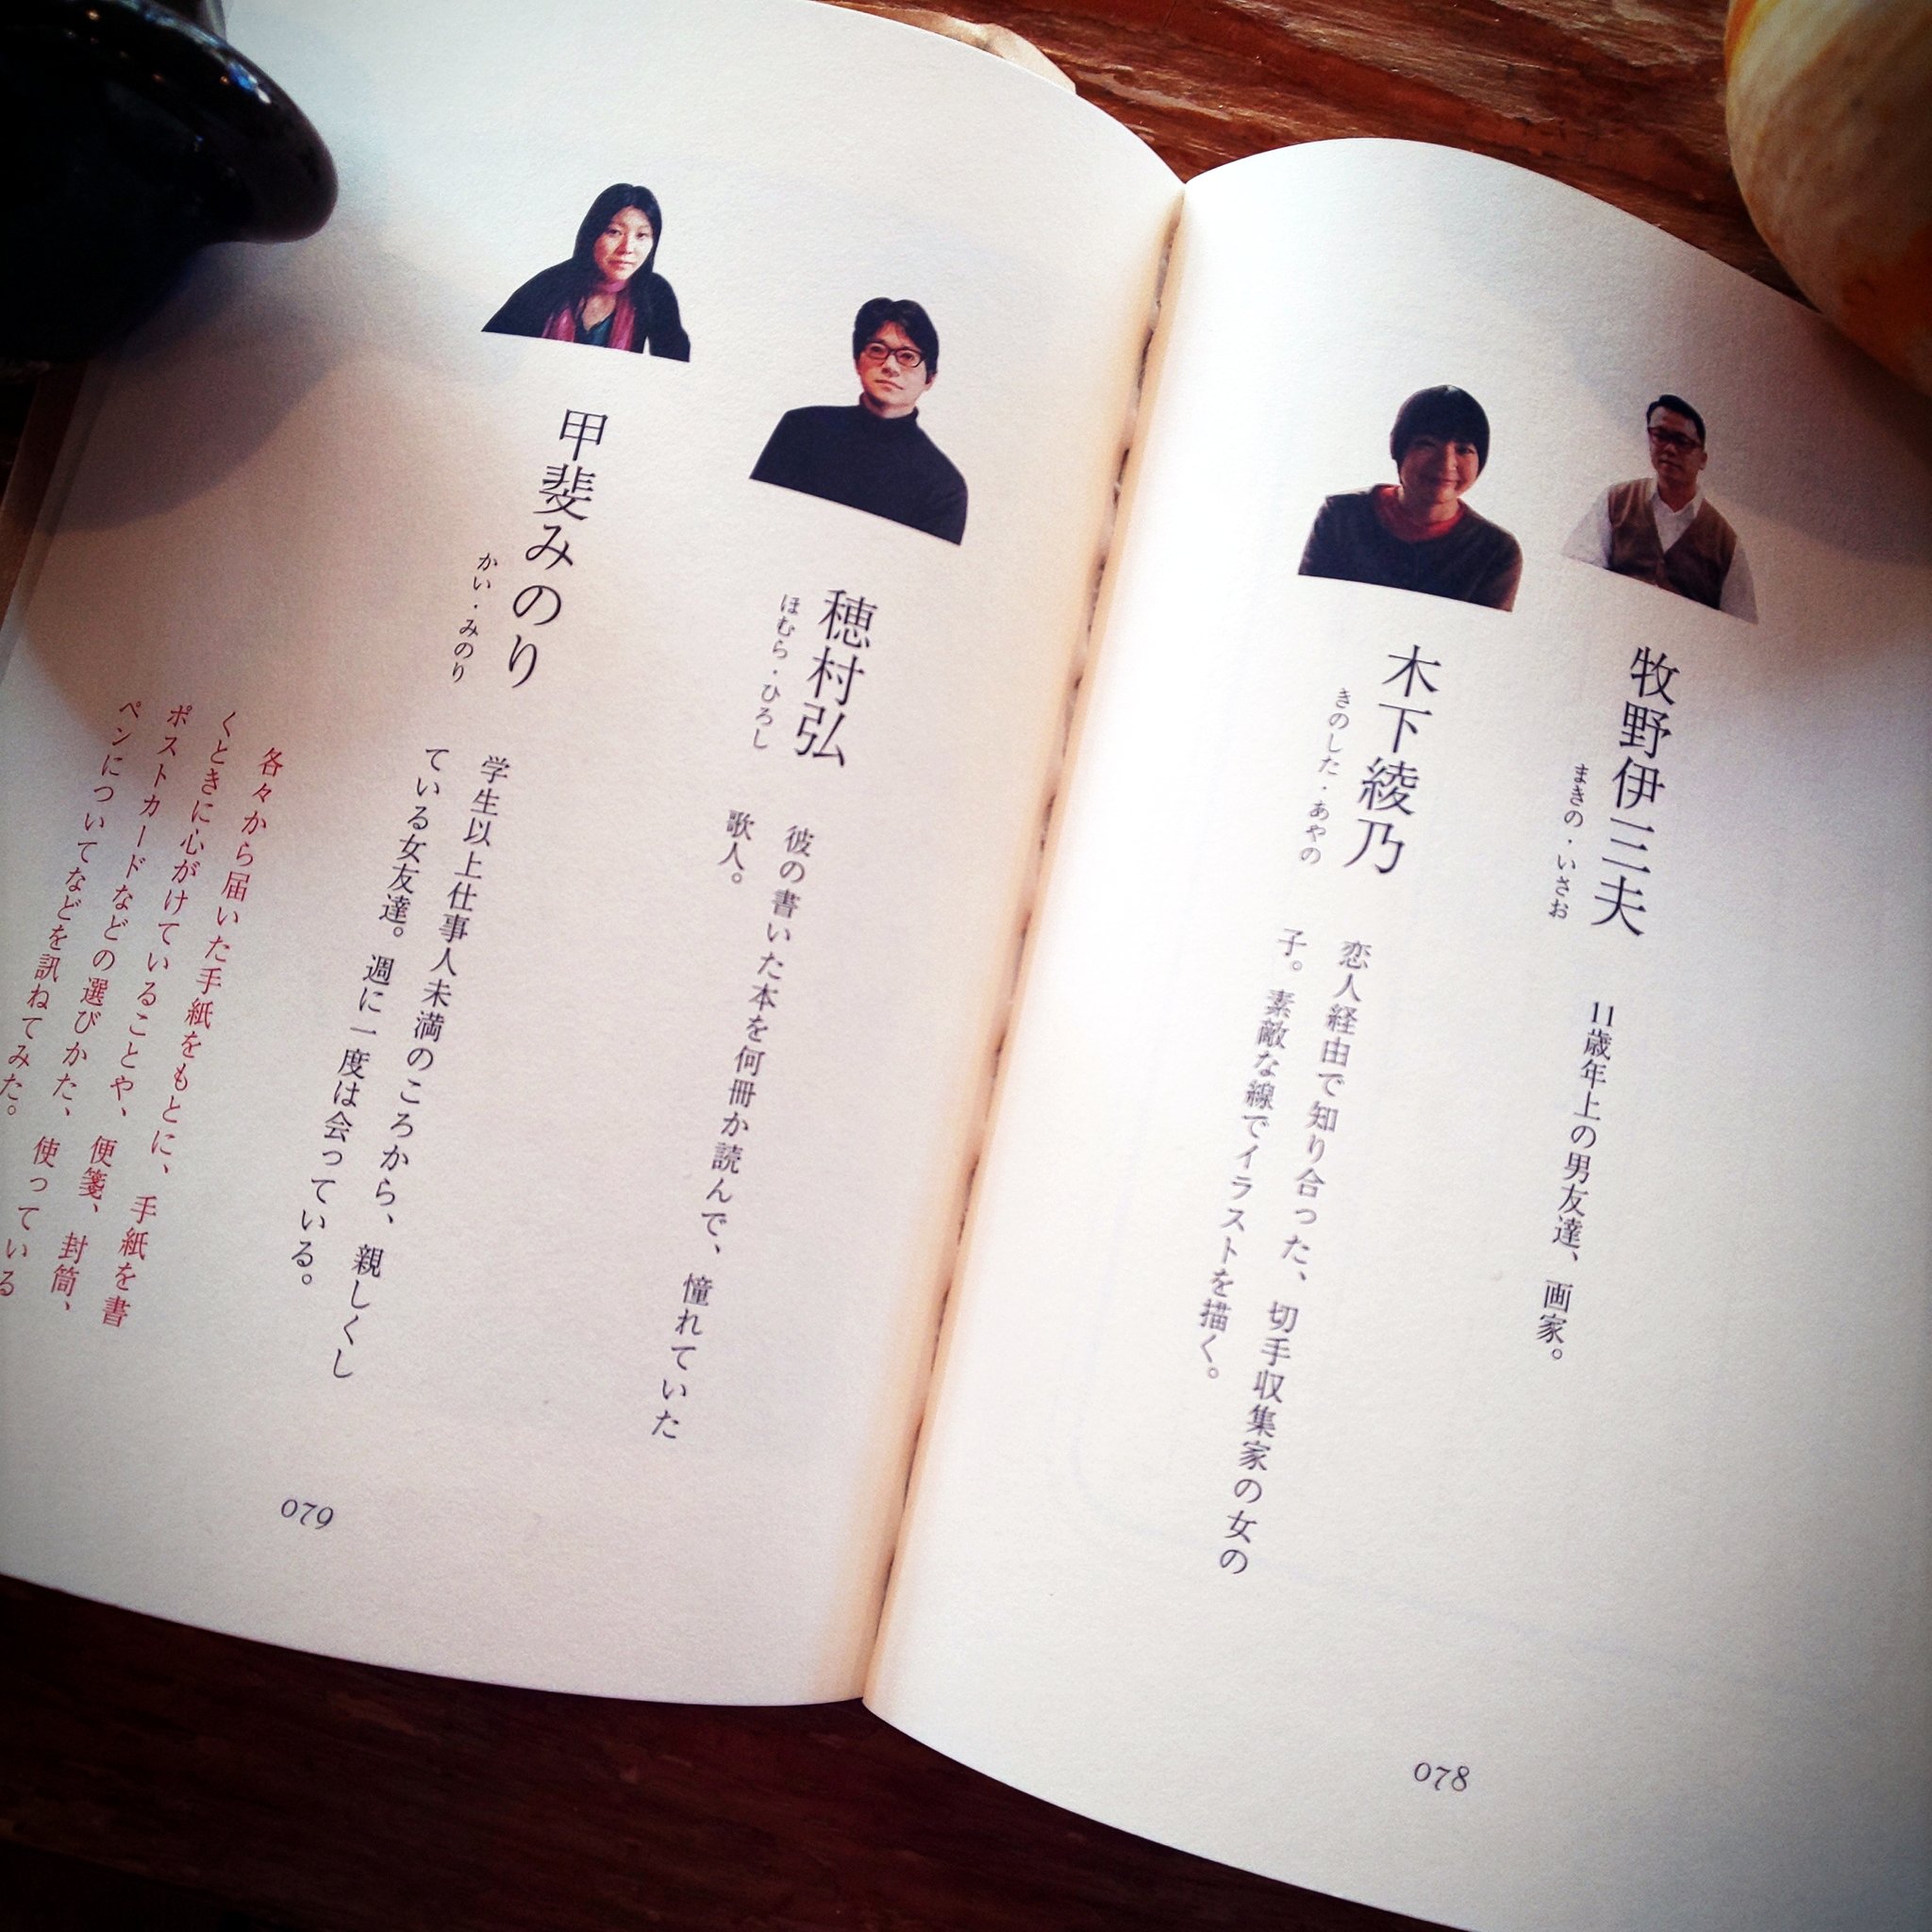 牧野伊三夫
まきの・いさお
11歳年上の男友達、画家。
木下綾乃
きのした・あやの
恋人経由で知り合った、切手収集家の女の
子。素敵な線でイラストを描く。
078
穂村弘
ほむら・ひろし
彼の書いた本を何冊か読んで、憧れていた
歌人。
甲斐みのり
かい・みのり
学生以上仕事人未満のころから、親しくし
ている女友達。週に一度は会っている。
各々から届いた手紙をもとに、手紙を書
くときに心がけていることや、便箋、封筒、
ポストカードなどの選びかた、使っている
ペンについてなどを訊ねてみた。
079